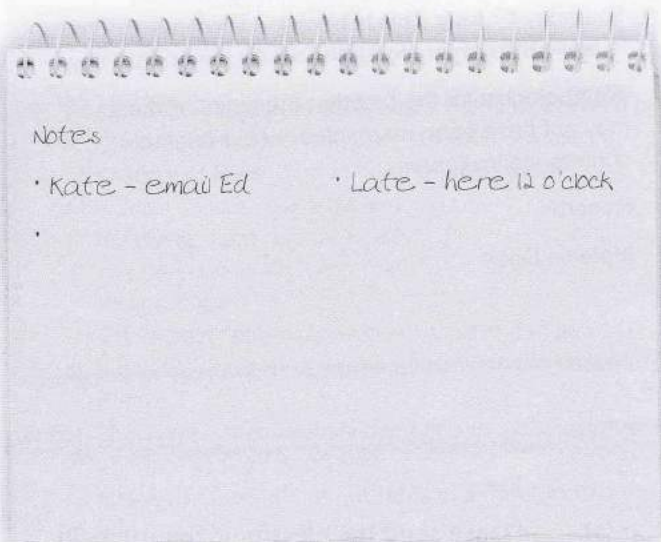 Notes
· Kate – email Ed · Late – here 12 o'clock
·